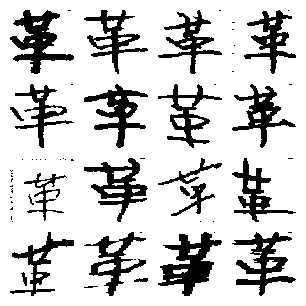 革革革革
革革革革
革革革革
革革革革